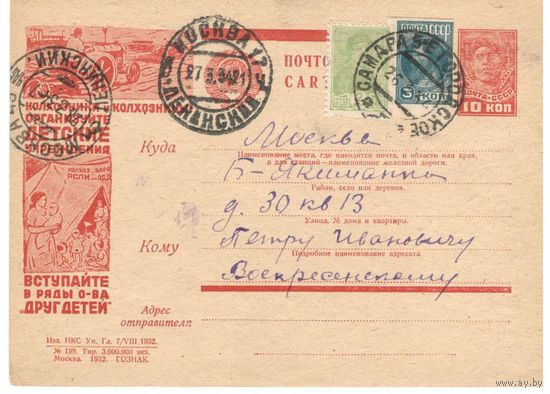 МОСКВА 17
27.5.34 21
ЛЕНИНСКИЙ
ПОЧТА СССР
3 КОП
САМАРА
10 КОП
ПОЧТО
CAR
КОЛХОЗНИКИ КОЛХОЗНИ
ОРГАНИЗУЙТЕ
ДЕТСКИЕ
МОСКВА
Куда
Москва
Наименование места, где находится почта, и области или края,
а для станций—наименование железной дороги.
Б-Якиманка
Район, село или деревня.
д. 30 кв 13
Улица, № дома и квартиры.
Кому
Петру Ивановичу
Подробное наименование адресата.
Воскресенскому
ЯСЛИ
ВСТУПАЙТЕ
В РЯДЫ О-ВА
"ДРУГ ДЕТЕЙ"
Адрес
отправителя:
Изд. НКС Уп. Гл. 7/VIII 1932.
№ 199. Тир. 3.000.000 экз.
Москва. 1932. ГОЗНАК.
www.ay.by